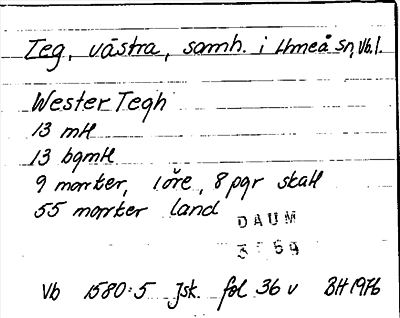 Teg, västra, samh. i Umeå sn, Vb.l.
Wester Tegh
13 mtl
13 bgmtl
9 marker, 1 öre, 8 pgr skatt
55 marker land
DAUM
3 5 69
Vb 1580:5 Jsk. fol 36 v BH 1976